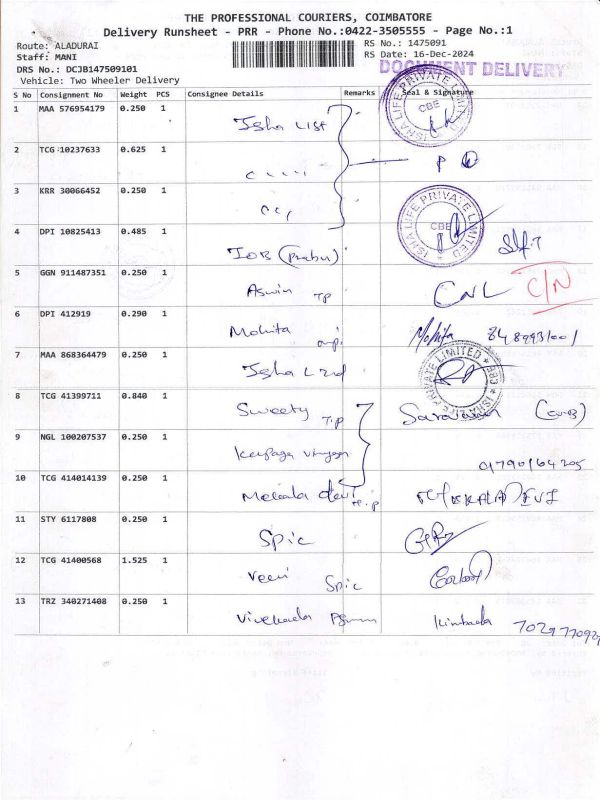 THE PROFESSIONAL COURIERS, COIMBATORE
Delivery Runsheet - PRR - Phone No.:0422-3505555 - Page No.:1
Route: ALADURAI RS No.: 1475091
Staff: MANI RS Date: 16-Dec-2024
DRS No.: DCJB147509101 DOCUMENT DELIVERY
Vehicle: Two Wheeler Delivery
S No Consignment No Weight PCS Consignee Details Remarks Seal & Signature
1 MAA 576954179 0.250 1 Isha List
ISHA LIFE PRIVATE LIMITED CBE
2 TCG 10237633 0.625 1
3 KRR 30066452 0.250 1
ISHA LIFE PRIVATE LIMITED CBE
4 DPI 10825413 0.485 1 IOB (Prabu)
5 GGN 911487351 0.250 1 Aswin TP CNL C/N
6 DPI 412919 0.290 1 Mohita Mohita
7 MAA 868364479 0.250 1 Isha
ISHA LIFE PRIVATE LIMITED CBE
8 TCG 41399711 0.840 1 Sweety T.P Saravanan
9 NGL 100207537 0.250 1
10 TCG 414014139 0.250 1 Mekala devi T.P MEKALA DEVI
11 STY 6117808 0.250 1 Spic
12 TCG 41400568 1.525 1 Veeni Spic
13 TRZ 340271408 0.250 1